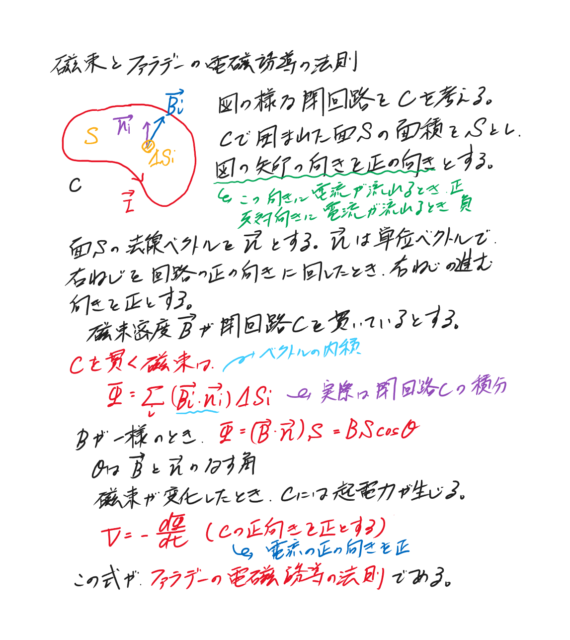 磁束とファラデーの電磁誘導の法則
図の様な閉回路をCを考える。
Cで囲まれた面Sの面積をSとし、
図の矢印の向きを正の向きとする。
この向きに電流が流れるとき 正
反対向きに電流が流れるとき 負
S
n⃗i
B⃗i
ΔSi
C
I⃗
面Sの法線ベクトルをn⃗とする。n⃗は単位ベクトルで、
右ねじを回路の正の向きに回したとき、右ねじの進む
向きを正とする。
磁束密度B⃗が閉回路Cを貫いているとする。
Cを貫く磁束は、
ベクトルの内積
Φ = Σi (B⃗i・n⃗i) ΔSi
実際は閉回路Cの積分
Bが一様のとき、Φ = (B⃗・n⃗) S = BS cosθ
θはB⃗とn⃗のなす角
磁束が変化したとき、Cには起電力が生じる。
V = - dΦ/dt (Cの正向きを正とする)
電流の正の向きを正
この式が、ファラデーの電磁誘導の法則である。